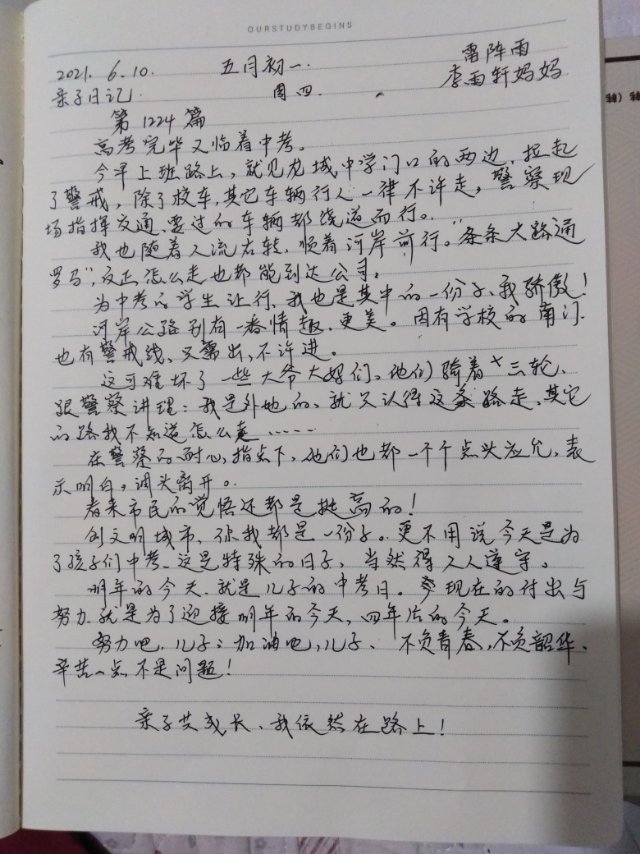 OURSTUDYBEGINS
2021. 6.10. 五月初一. 雷阵雨
亲子日记 周四. 李雨轩妈妈
第1224篇
高考完毕又临着中考。
今早上班路上,就见龙城中学门口的两边,拉起
了警戒,除了校车,其它车辆行人一律不许走,警察现
场指挥交通,要过的车辆都绕道而行。
我也随着人流右转,顺着河岸前行。"条条大路通
罗马",反正怎么走也都能到达公司。
为中考的学生让行,我也是其中的一份子,我骄傲!
河岸公路别有一番情趣,更美。因有学校的南门,
也有警戒线,又露出,不许进。
这可难坏了一些大爷大妈们,他们骑着三轮,
跟警察讲理:我是外地的,就只认得这条路走,其它
的路我不知道怎么走……
在警察的耐心,指点下,他们也都一个个点头应允,表
示明白,调头离开。
看来市民的觉悟还都是挺高的!
创文明城市,你我都是一份子。更不用说今天是为
了孩子们中考,这是特殊的日子,当然得人人遵守。
明年的今天,就是儿子的中考日。现在的付出与
努力就是为了迎接明年的今天,四年后的今天。
努力吧,儿子;加油吧,儿子、不负青春,不负韶华,
辛苦一点不是问题!
亲子共成长、我依然在路上!